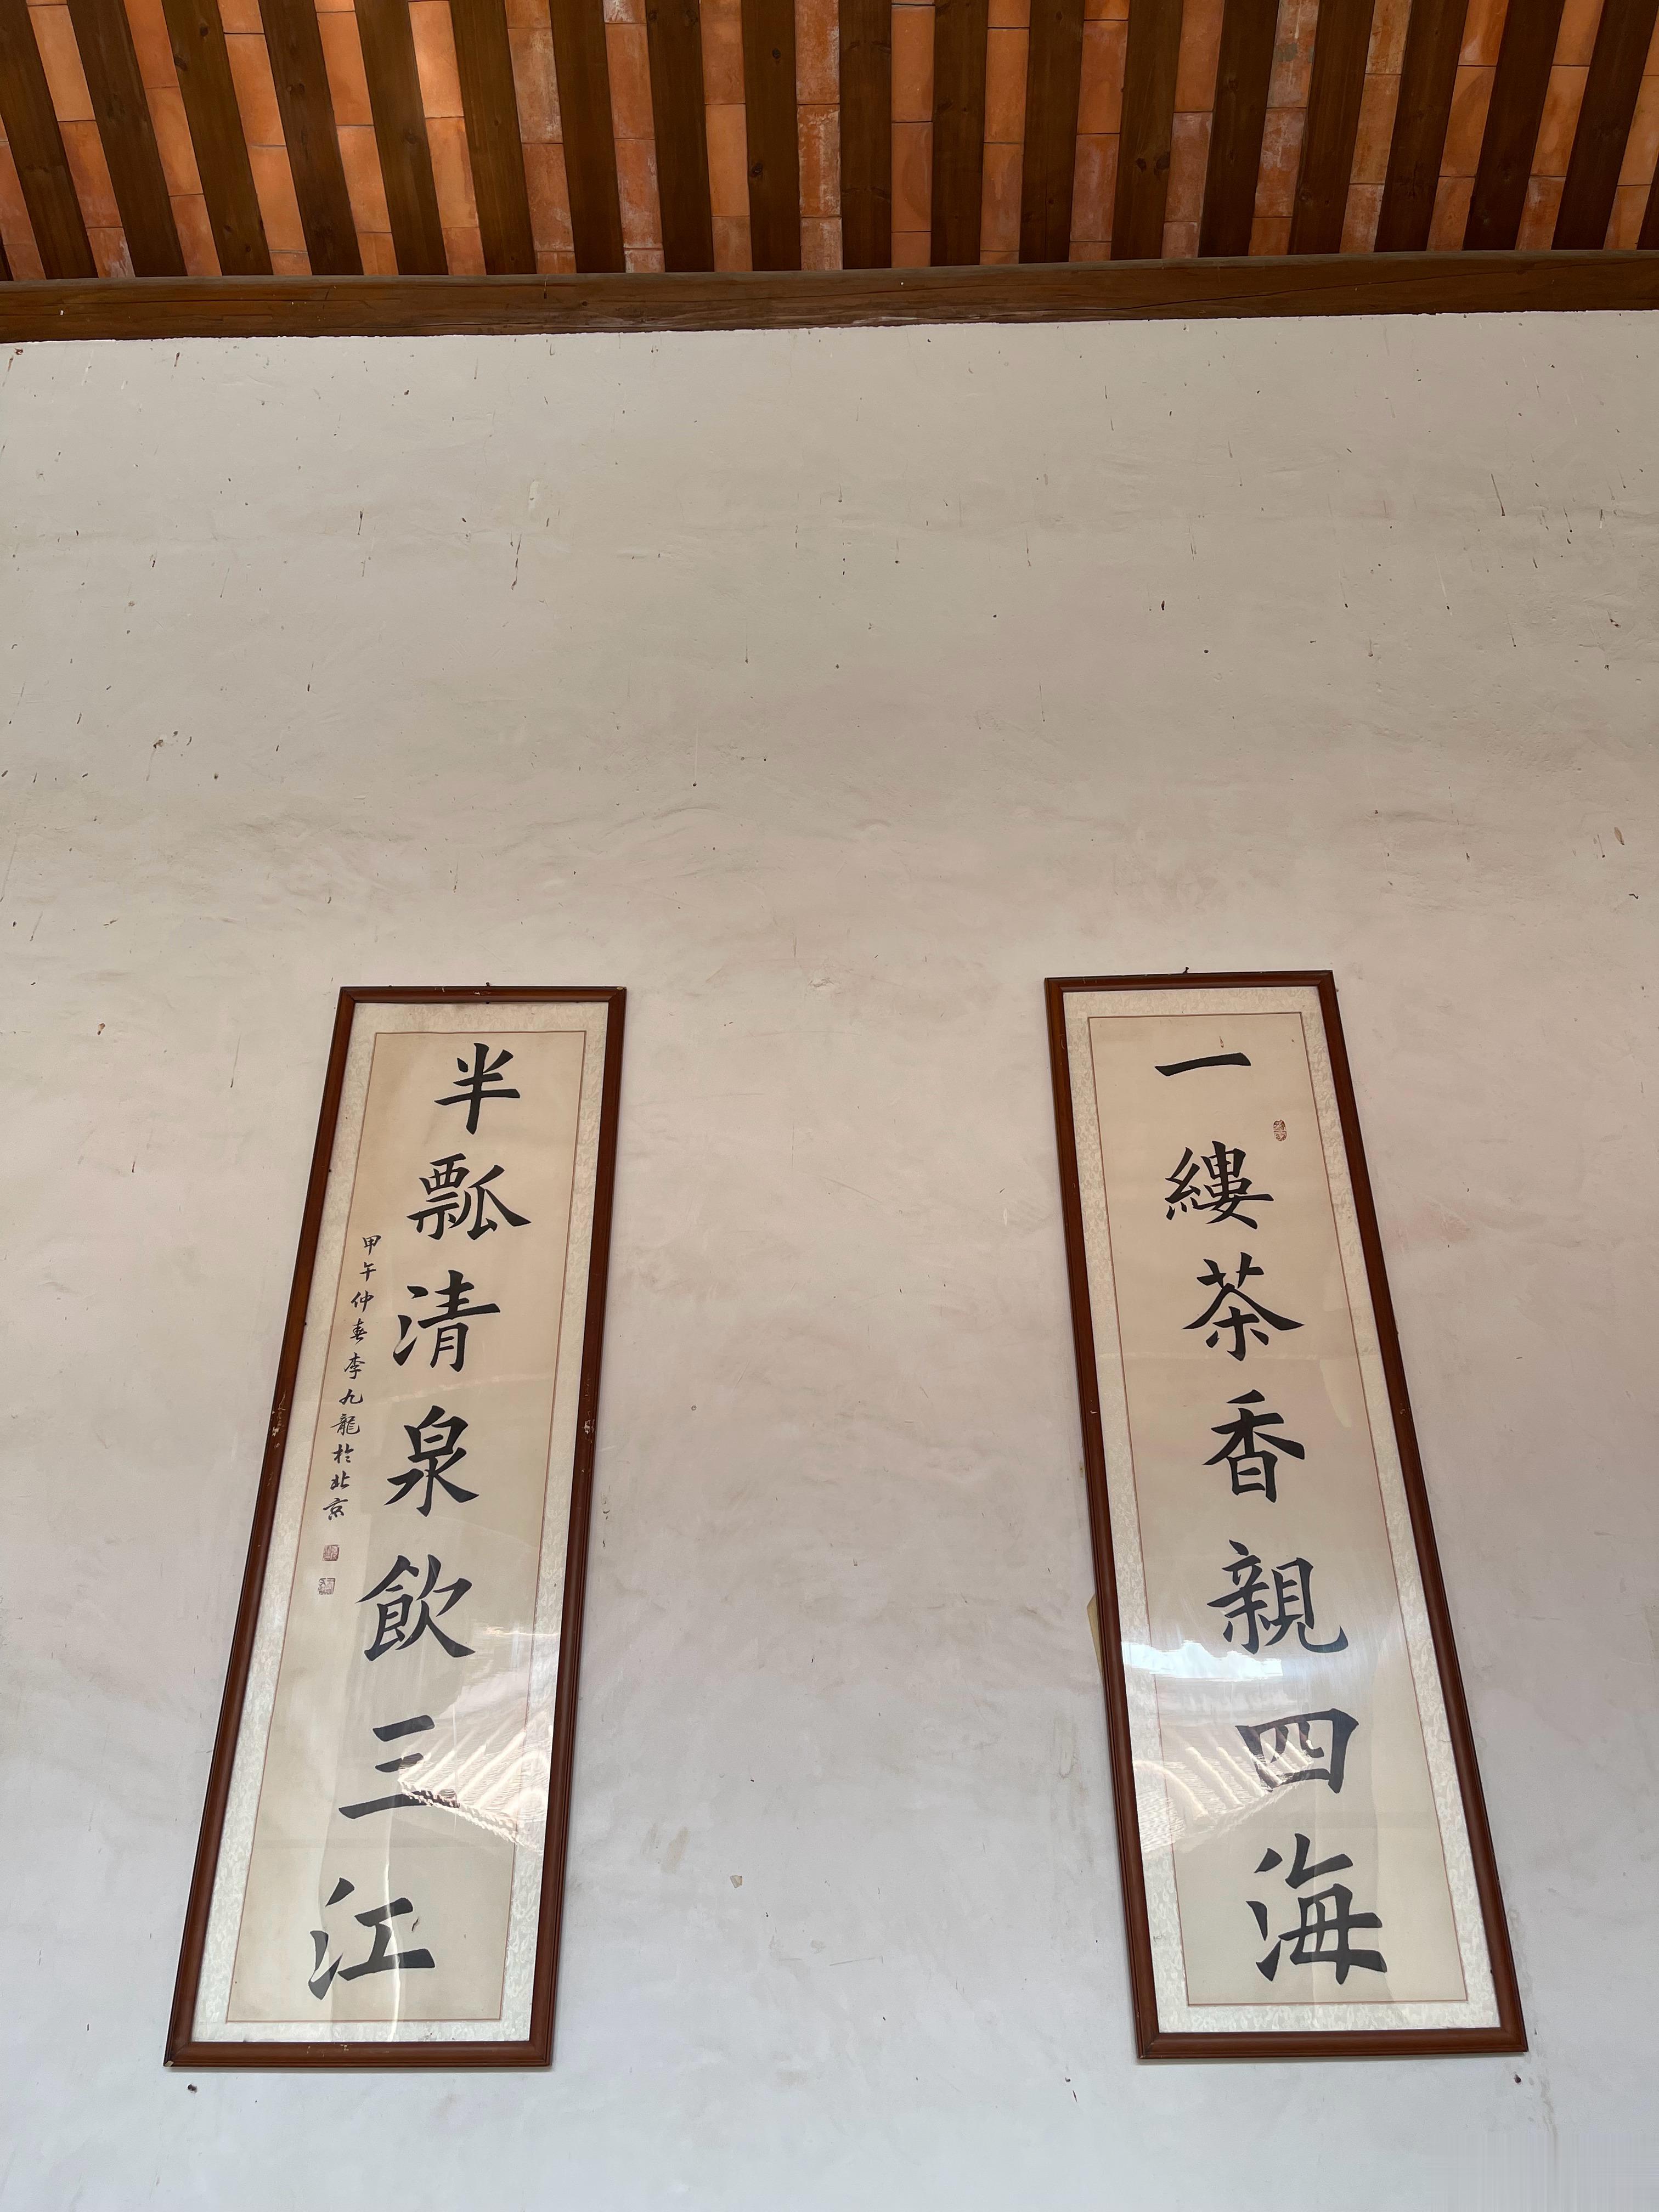 一縷茶香親四海
半瓢清泉飲三江
甲午仲春李九龍於北京